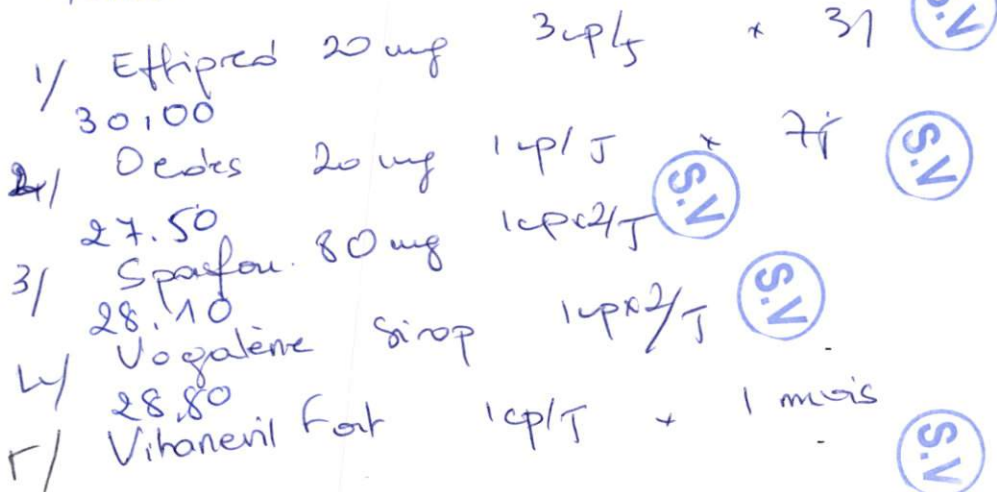 1/ Effipred 20 mg 3cp/j * 3J S.V
30,00
2/ Oedes 20 mg 1cp/J x 7j S.V
27.50 S.V
3/ Spasfon. 80 mg 1cpx2/J
28,10 S.V
4/ Vogalène Sirop 1cpx2/J
28,80
5/ Vitanevril Fort 1cp/J x 1 mois S.V